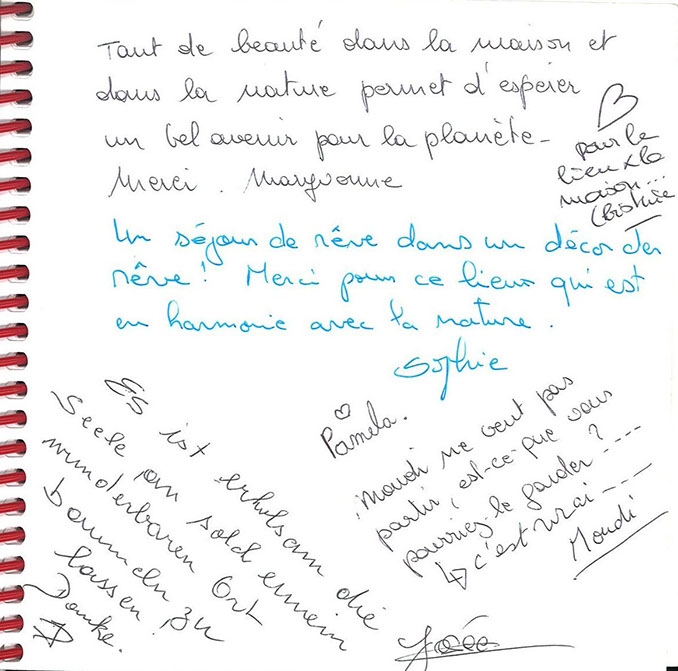 Tant de beauté dans la maison et
dans la nature permet d'espérer
un bel avenir pour la planète-
Merci. Maryvonne
pour le
lieu & la
maison...
Un séjour de rêve dans un décor de
rêve! Merci pour ce lieux qui est
en harmonie avec la nature.
Sophie
Pamela.
Moudi ne veut pas
partir, est-ce que vous
pourriez le garder ? ----
↳ c'est vrai ----
Moudi
ES ist erholsam die
Seele an solch einem
wunderbaren Ort
baumeln zu
lassen!
Danke.